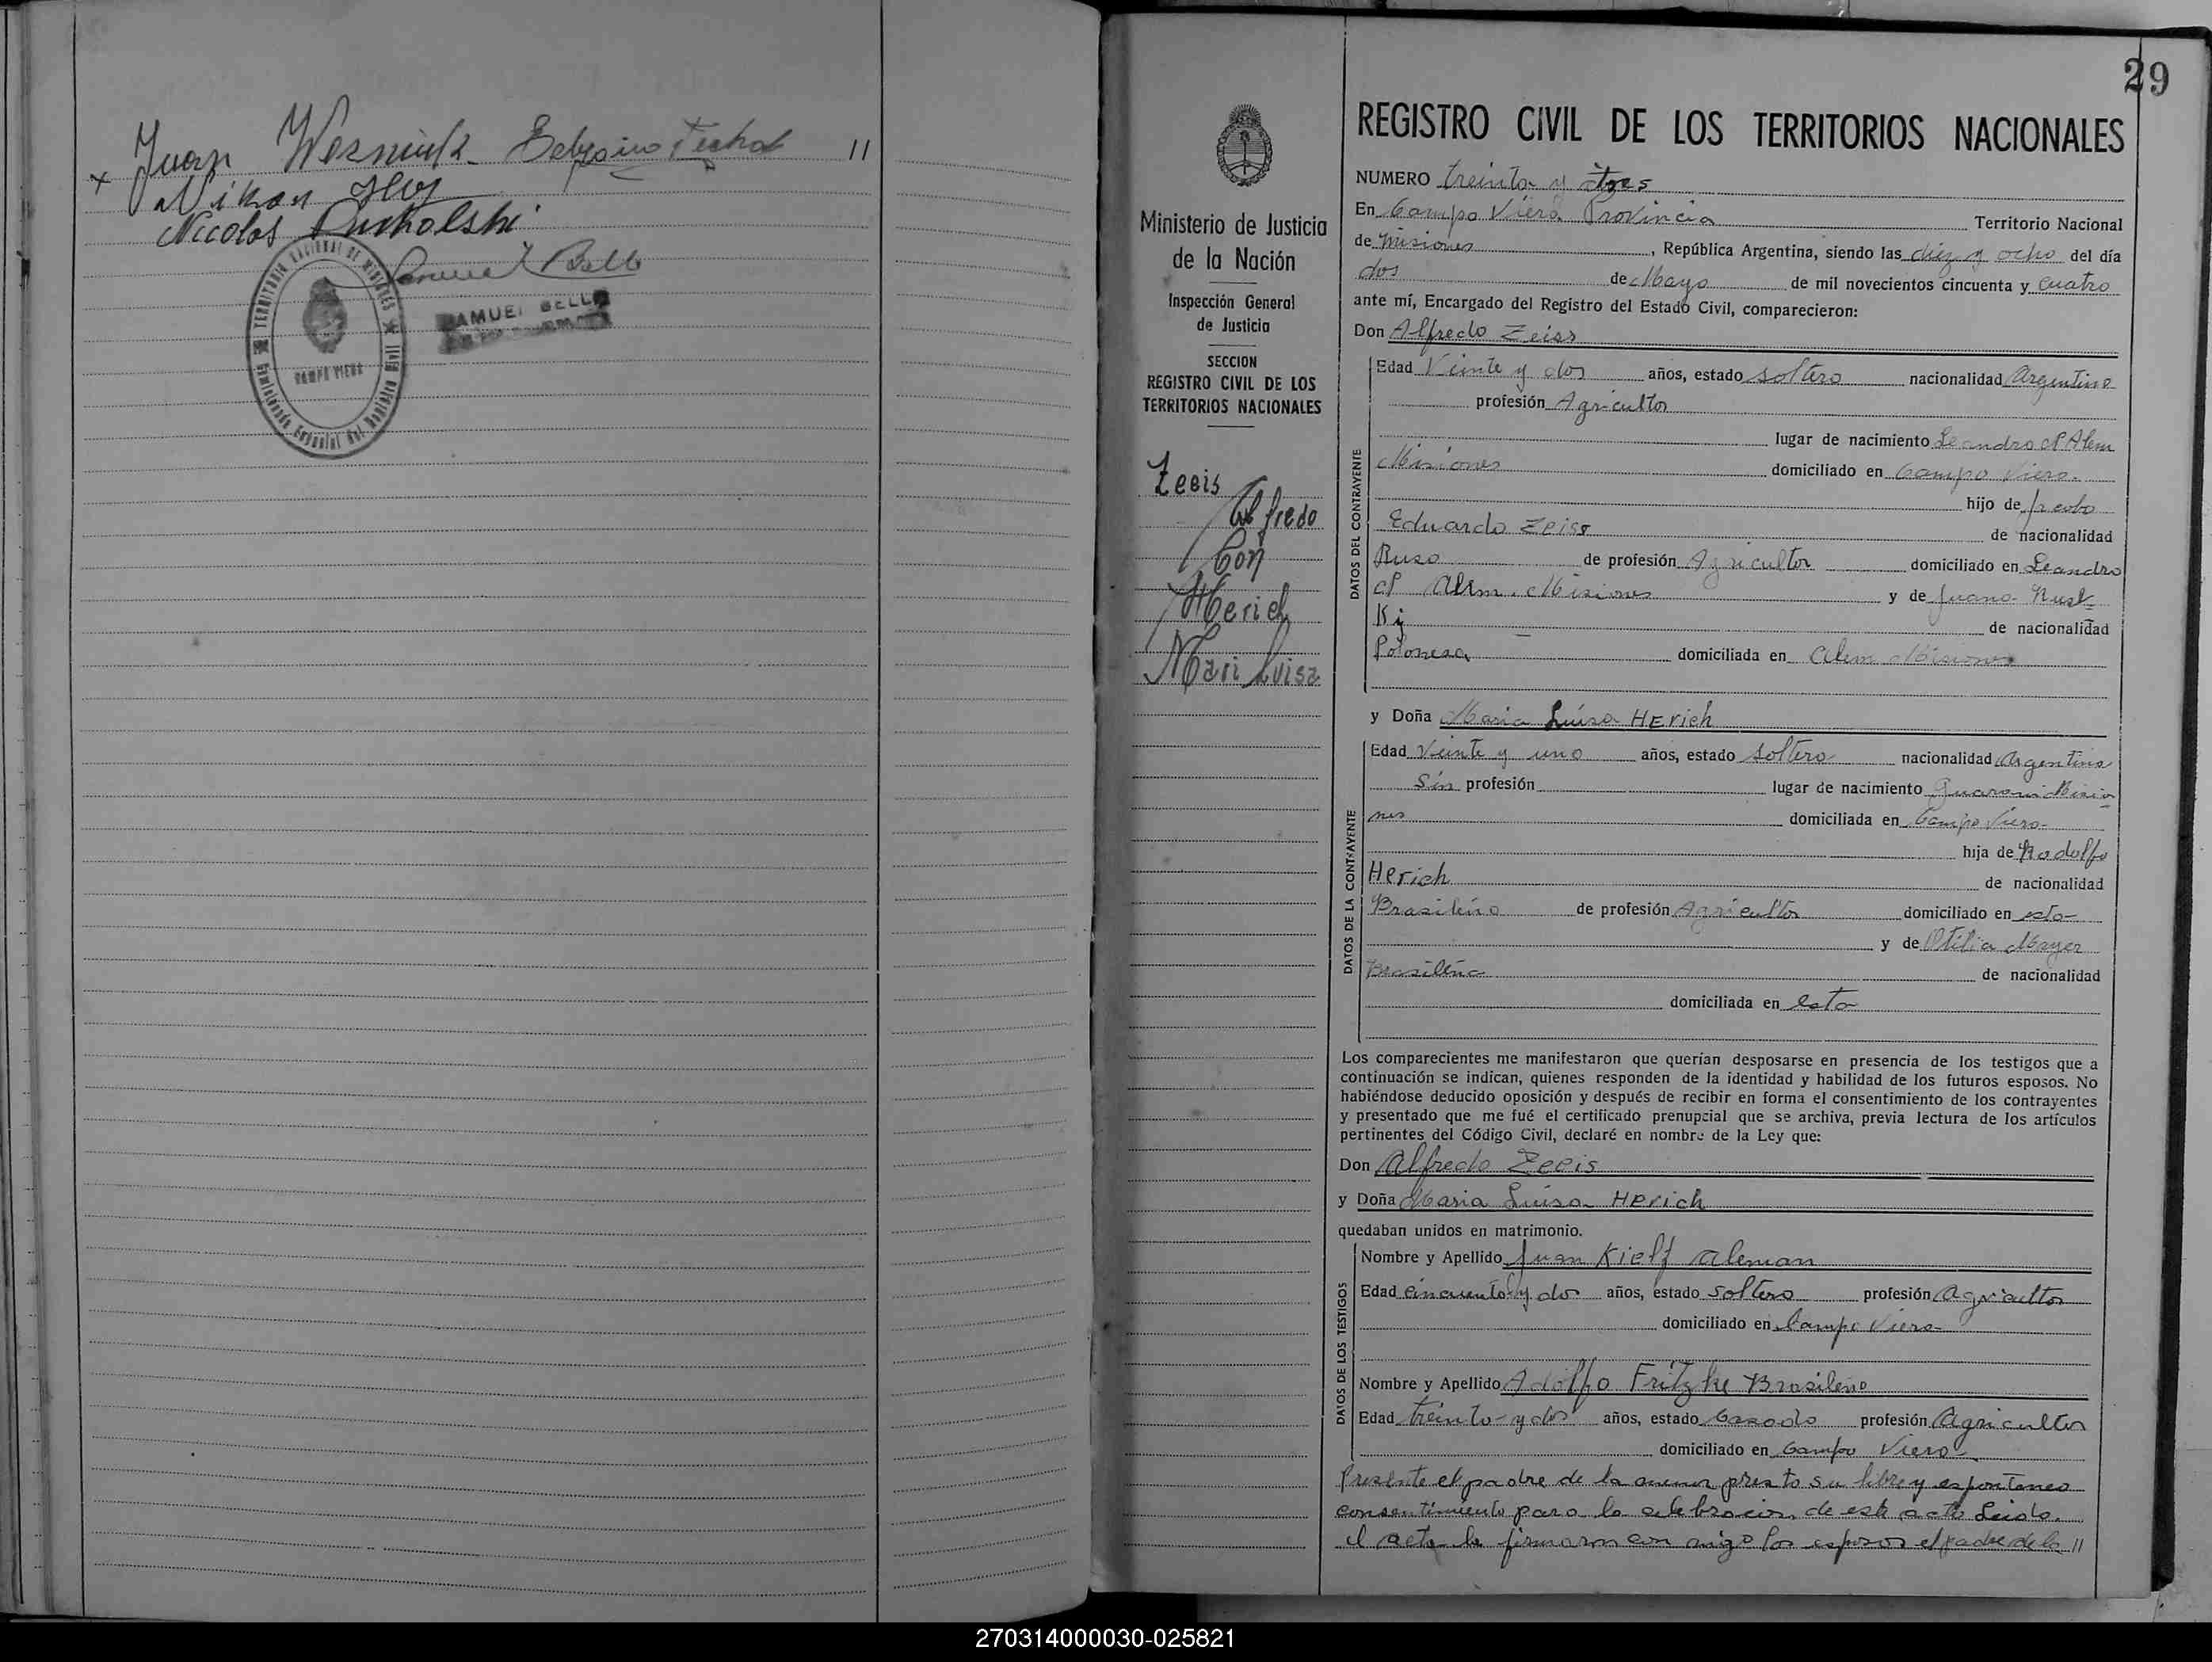 Juan Wesniuk Pechol 11
x Nikon Iluj
Nicolas
Samuel Bello
TERRITORIO NACIONAL DE MISIONES
CAMPO VIERA
SAMUEL BELLO
29
REGISTRO CIVIL DE LOS TERRITORIOS NACIONALES
Ministerio de Justicia
de la Nación
Inspección General
de Justicia
SECCION
REGISTRO CIVIL DE LOS
TERRITORIOS NACIONALES
Zeeis
Alfredo
Con
Herich
Mari Luisa
NUMERO treinta y tres
En Campo Viera Provincia Territorio Nacional
de Misiones, República Argentina, siendo las diez y ocho del día
dos de Mayo de mil novecientos cincuenta y cuatro
ante mí, Encargado del Registro del Estado Civil, comparecieron:
Don Alfredo Zeiss
DATOS DEL CONTRAYENTE
Edad Veinte y dos años, estado soltero nacionalidad Argentino
profesión Agricultor
lugar de nacimiento Leandro N Alem
Misiones domiciliado en Campo Viera
hijo de
Eduardo Zeiss de nacionalidad
Ruso de profesión Agricultor domiciliado en Leandro
N Alem. Misiones y de Juana
ki de nacionalidad
Polonesa domiciliada en Alem Misiones
y Doña Maria Luisa HErich
DATOS DE LA CONTRAYENTE
Edad Veinte y uno años, estado soltera nacionalidad Argentina
Sin profesión lugar de nacimiento Guarani Misio
nes domiciliada en Campo Viera
hija de Rodolfo
Herich de nacionalidad
Brasileño de profesión Agricultor domiciliado en esta
y de Otilia Mayer
Brasileña de nacionalidad
domiciliada en esta
Los comparecientes me manifestaron que querían desposarse en presencia de los testigos que a
continuación se indican, quienes responden de la identidad y habilidad de los futuros esposos. No
habiéndose deducido oposición y después de recibir en forma el consentimiento de los contrayentes
y presentado que me fué el certificado prenupcial que se archiva, previa lectura de los artículos
pertinentes del Código Civil, declaré en nombre de la Ley que:
Don Alfredo Zeeis
y Doña Maria Luisa HErich
quedaban unidos en matrimonio.
DATOS DE LOS TESTIGOS
Nombre y Apellido Juan Kielf Aleman
Edad cincuenta y dos años, estado soltero profesión Agricultor
domiciliado en Campo Viera
Nombre y Apellido Adolfo Fritzke Brasileño
Edad treinta y dos años, estado Casado profesión Agricultor
domiciliado en Campo Viera
Presente el padre de la menor presto su libre y espontaneo
consentimiento para la celebracion de este acto Leida
el acta la firmaron con migo los esposos el padre de la 11
270314000030-025821